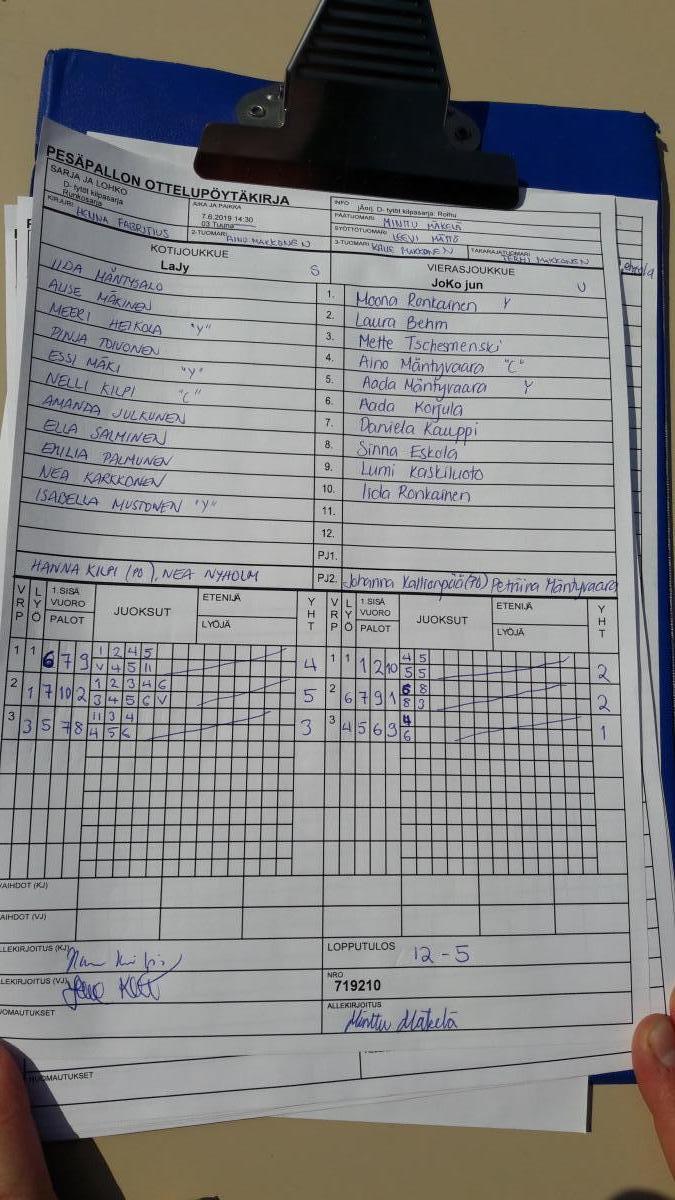 PESÄPALLON OTTELUPÖYTÄKIRJA
SARJA JA LOHKO
D- tytöt kilpasarja
Runkosarja
AIKA JA PAIKKA
7.6.2019 14:30
03 Tuuma
INFO
jAorj. D- tytöt kilpasarja: Roihu
PÄÄTUOMARI MINTTU MÄKELÄ
SYÖTTÖTUOMARI LEEVI MÄTTÖ
KIRJURI HENNA FABRITIUS
2-TUOMARI AINO MAKKONEN
3-TUOMARI KALLE MAKKONEN
TAKARAJATUOMARI TERHI MAKKONEN
KOTIJOUKKUE
LaJy S
VIERASJOUKKUE
JoKo jun U
IIDA MÄNTYSALO 1. Moona Ronkainen Y
AUSE MÄKINEN 2. Laura Behm
MEERI HEIKOLA "Y" 3. Mette Tschernenski
PINJA TOIVONEN 4. Aino Mäntyvaara "C"
ESSI MÄKI "Y" 5. Aada Mäntyvaara Y
NELLI KILPI "C" 6. Aada Korjula
AMANDA JULKUNEN 7. Daniela Kauppi
ELLA SALMINEN 8. Sinna Eskola
EMILIA PALMUNEN 9. Lumi Kaskiluoto
NEA KARKKONEN 10. Iida Ronkainen
ISABELLA MUSTONEN "Y" 11.
12.
PJ1.
HANNA KILPI (PJ), NEA NYHOLM PJ2. Johanna Kallionpää (PJ) Petriina Mäntyvaara
VRP LYÖ 1.SISÄ VUORO PALOT JUOKSUT ETENIJÄ LYÖJÄ YHT VRP LYÖ 1.SISÄ VUORO PALOT JUOKSUT ETENIJÄ LYÖJÄ YHT
1 1 6 7 9 1 2 4 5 4 1 1 1 2 10 4 5 2
V 4 5 11 5 5
2 1 7 10 2 1 2 3 4 6 5 2 6 7 9 1 6 8 2
3 4 5 6 V 8 3
3 3 5 7 8 11 3 4 3 3 4 5 6 9 4 1
4 5 6 6
VAIHDOT (KJ)
VAIHDOT (VJ)
ALLEKIRJOITUS (KJ)
LOPPUTULOS 12 - 5
ALLEKIRJOITUS (VJ)
NRO
719210
HUOMAUTUKSET
ALLEKIRJOITUS
Minttu Mäkelä
HUOMAUTUKSET